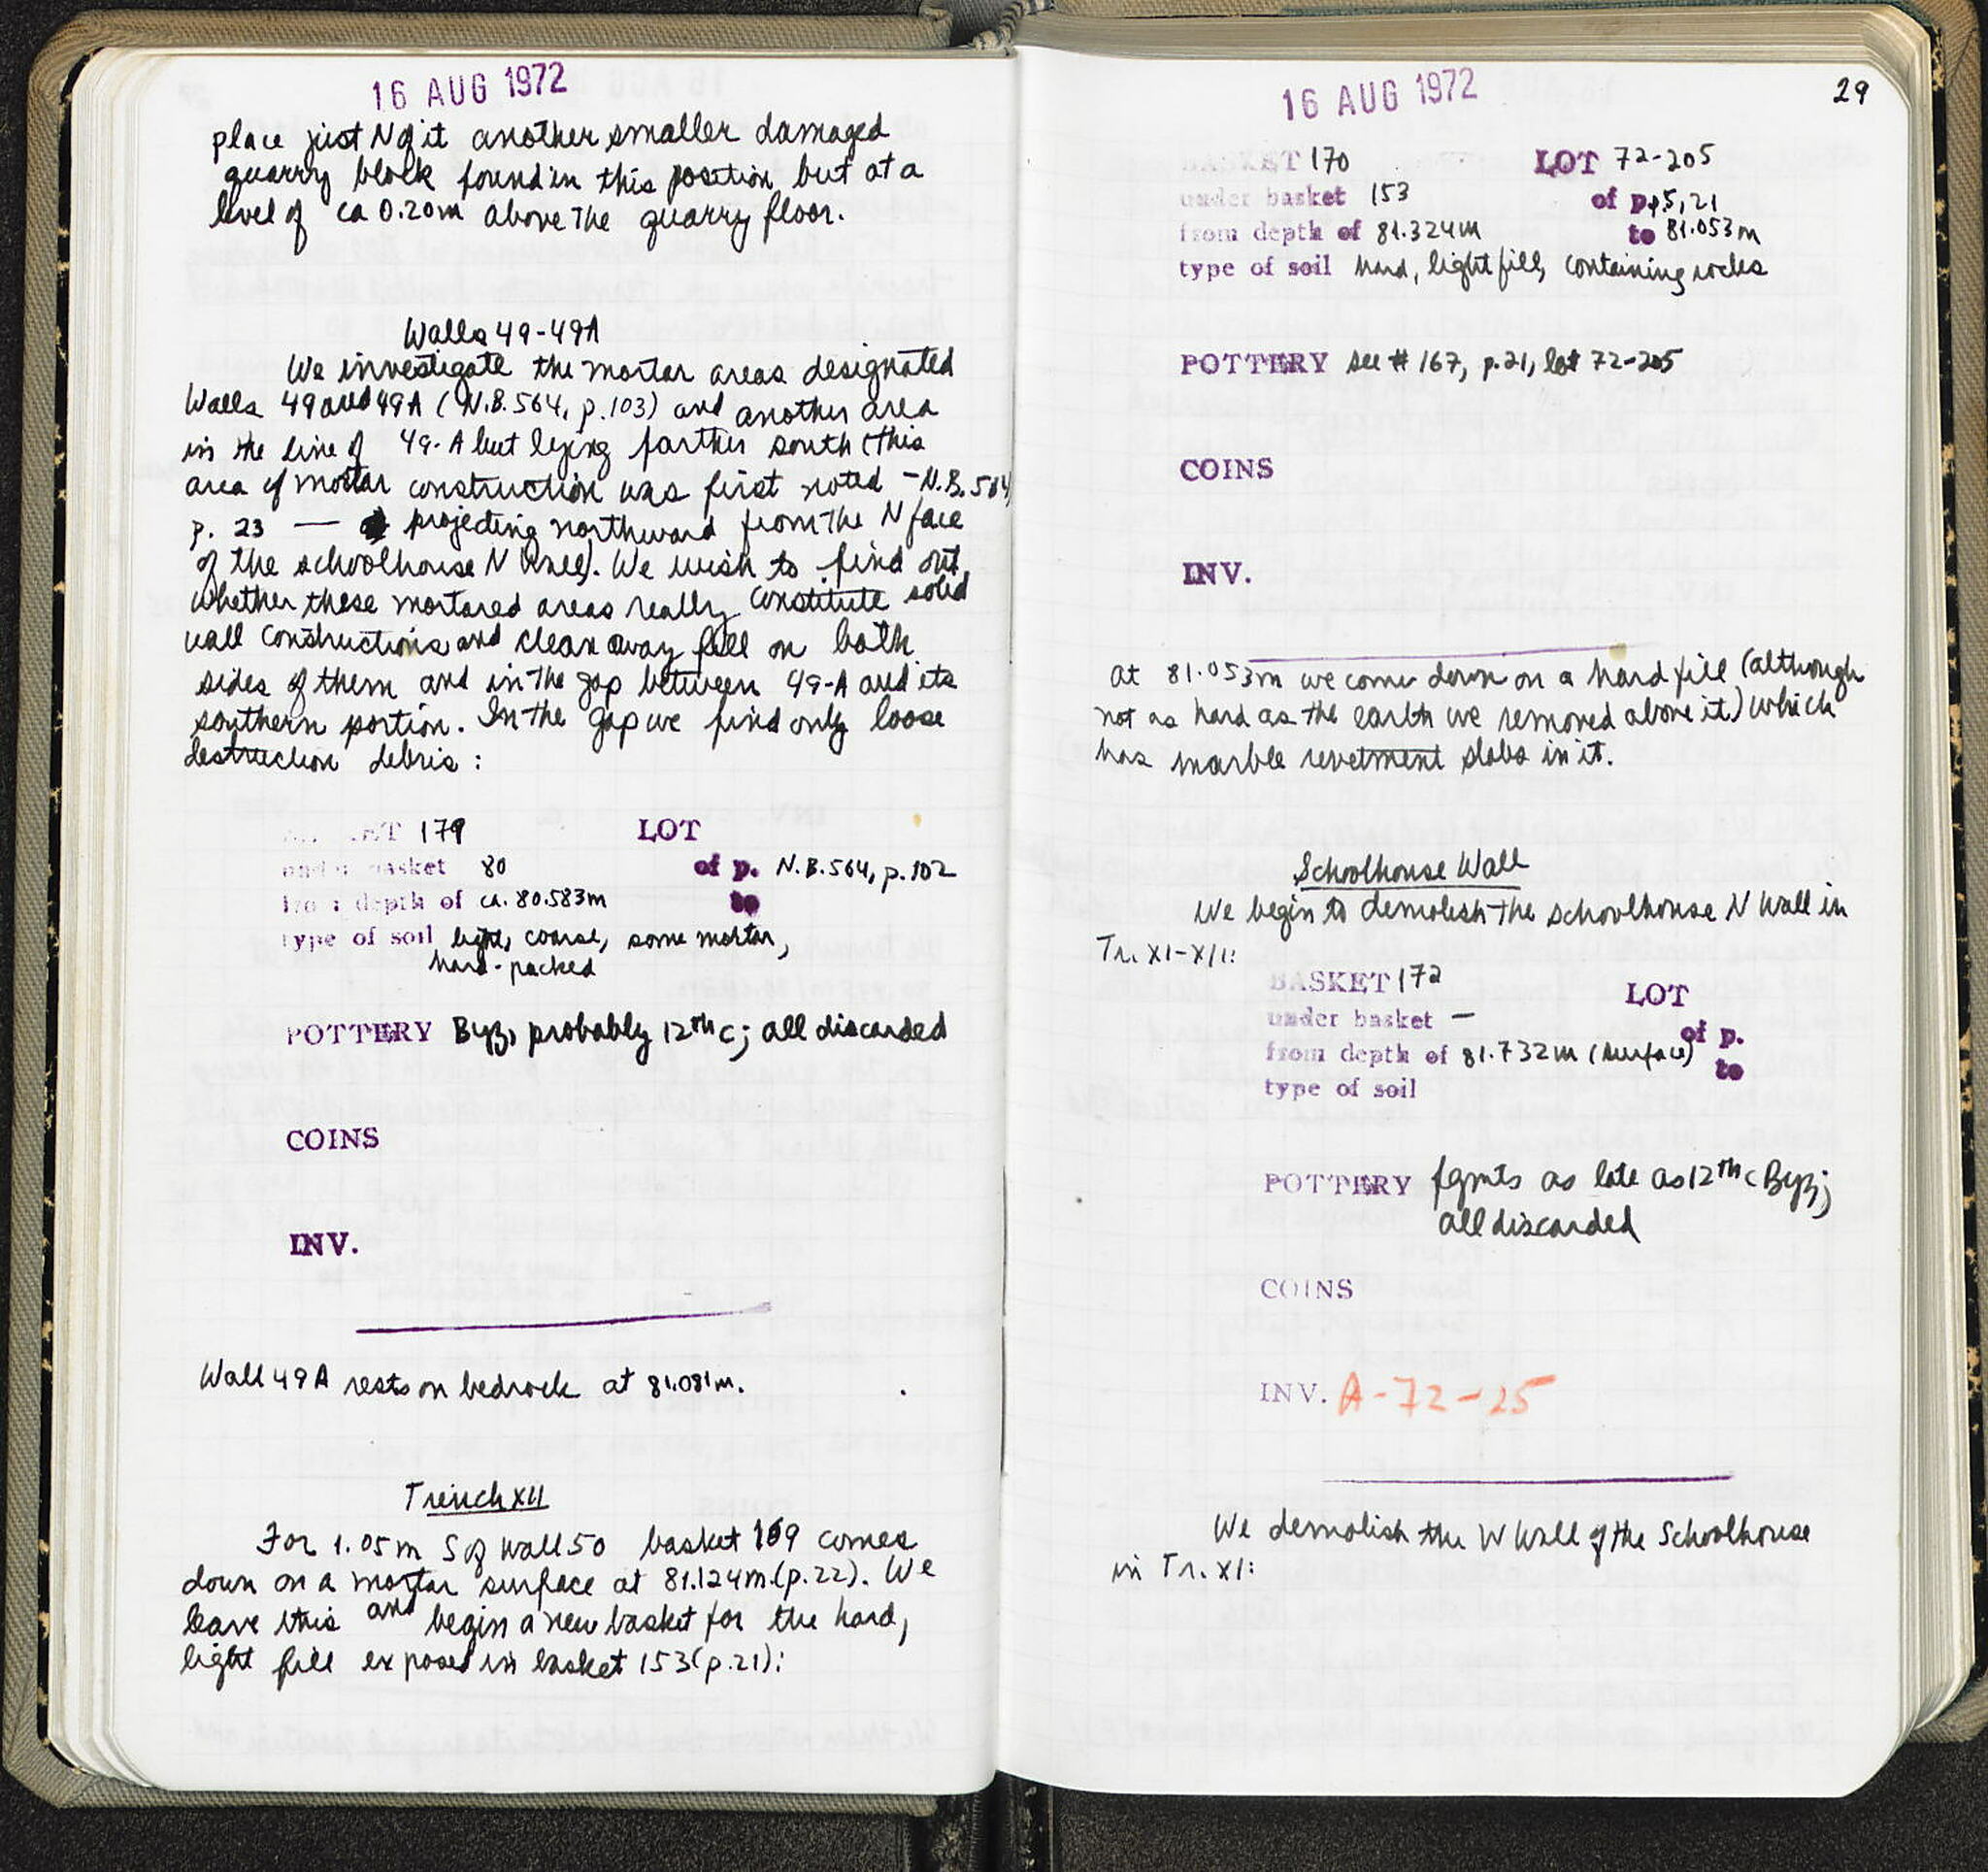 16 AUG 1972
place just N of it another smaller damaged
quarry block found in this position but at a
level of ca 0.20m above the quarry floor.
Walls 49-49A
We investigate the mortar areas designated
Walls 49 and 49A (N.B.564, p.103) and another area
in the line of 49-A but lying farther south (this
area of mortar construction was first noted - N.B.564
p. 23 — projecting northward from the N face
of the schoolhouse N wall). We wish to find out
whether these mortared areas really constitute solid
wall constructions and clean away fill on both
sides of them and in the gap between 49-A and its
southern portion. In the gap we find only loose
destruction debris:
BASKET 179 LOT
under basket 80 of p. N.B.564, p.102
from depth of ca. 80.583m to
type of soil light, coarse, some mortar,
hard-packed
POTTERY Byz, probably 12th c; all discarded
COINS
INV.
Wall 49A rests on bedrock at 81.081m.
Trench XII
For 1.05m S of Wall 50 basket 169 comes
down on a mortar surface at 81.124m.(p.22). We
leave this and begin a new basket for the hard,
light fill exposed in basket 153(p.21):
16 AUG 1972
29
BASKET 170 LOT 72-205
under basket 153 of p. 5, 21
from depth of 81.324m to 81.053m
type of soil hard, light fill, containing rocks
POTTERY see # 167, p.21, lot 72-205
COINS
INV.
At 81.053m we come down on a hard fill (although
not as hard as the earth we removed above it) which
has marble revetment slabs in it.
Schoolhouse Wall
We begin to demolish the schoolhouse N Wall in
Tr. XI-XII:
BASKET 172 LOT
under basket — of p.
from depth of 81.732m (surface) to
type of soil
POTTERY fgmts as late as 12th c Byz;
all discarded
COINS
INV. A-72-25
We demolish the W Wall of the Schoolhouse
in Tr. XI: